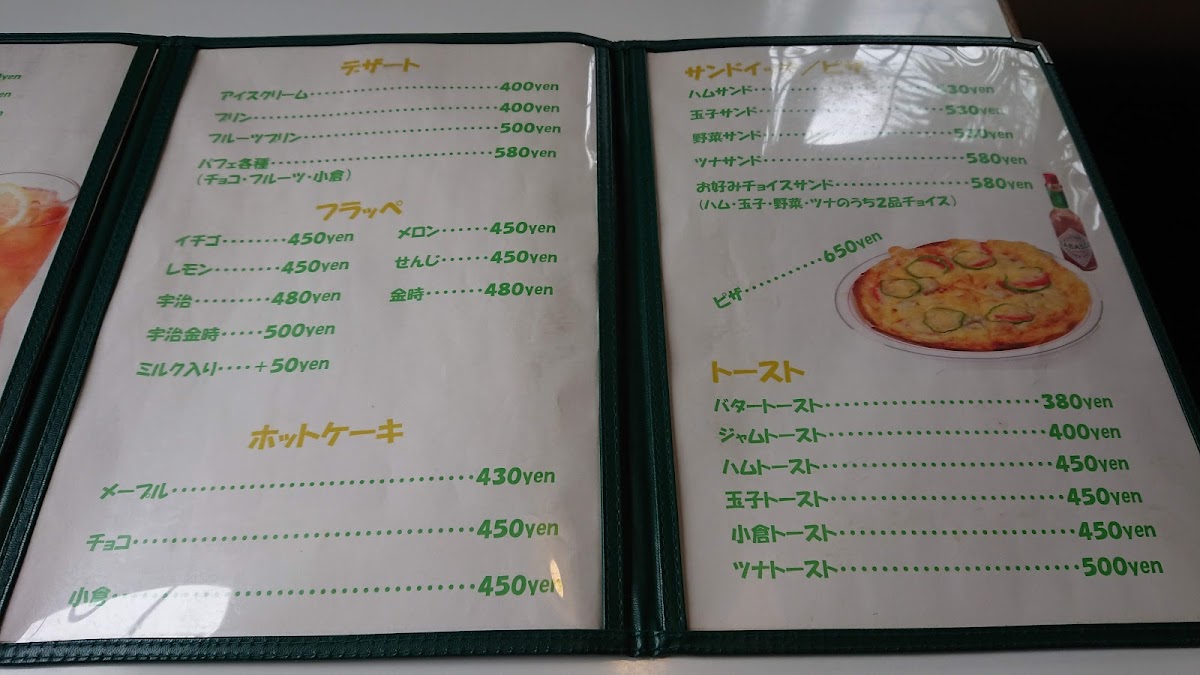 yen
yen
デザート
アイスクリーム 400yen
プリン 400yen
フルーツプリン 500yen
パフェ各種 580yen
(チョコ・フルーツ・小倉)
フラッペ
イチゴ 450yen メロン 450yen
レモン 450yen せんじ 450yen
宇治 480yen 金時 480yen
宇治金時 500yen
ミルク入り +50yen
ホットケーキ
メープル 430yen
チョコ 450yen
小倉 450yen
サンドイッチ/ピザ
ハムサンド 30yen
玉子サンド 530yen
野菜サンド 530yen
ツナサンド 580yen
お好みチョイスサンド 580yen
(ハム・玉子・野菜・ツナのうち2品チョイス)
ピザ 650yen
トースト
バタートースト 380yen
ジャムトースト 400yen
ハムトースト 450yen
玉子トースト 450yen
小倉トースト 450yen
ツナトースト 500yen